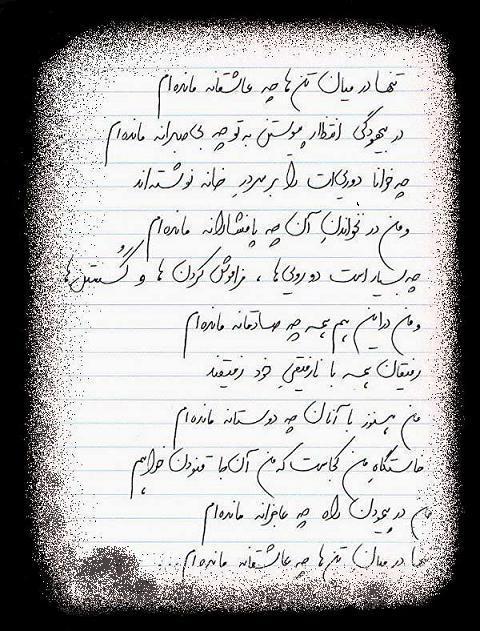 تنها در میان تن ها چه عاشقانه مانده ام
در بیهودگی افکار پیوستن به تو چه بی صبرانه مانده ام
چه خوانا دوری ات را بر سر در خانه نوشته اند
و من در نخواندن آن چه پافشارانه مانده ام
چه بسیار است دورویی ها ، فراموش کردن ها و گسستن ها
و من در این همهمه چه صادقانه مانده ام
رفیقان همه با نارفیقی خود رفیقند
من هنوز با آنان چه دوستانه مانده ام
خاستگاه من کجاست که من آن جا غنودن خواهم
من در پیمودن راه چه عاجزانه مانده ام
تنها در میان تن ها چه عاشقانه مانده ام ...